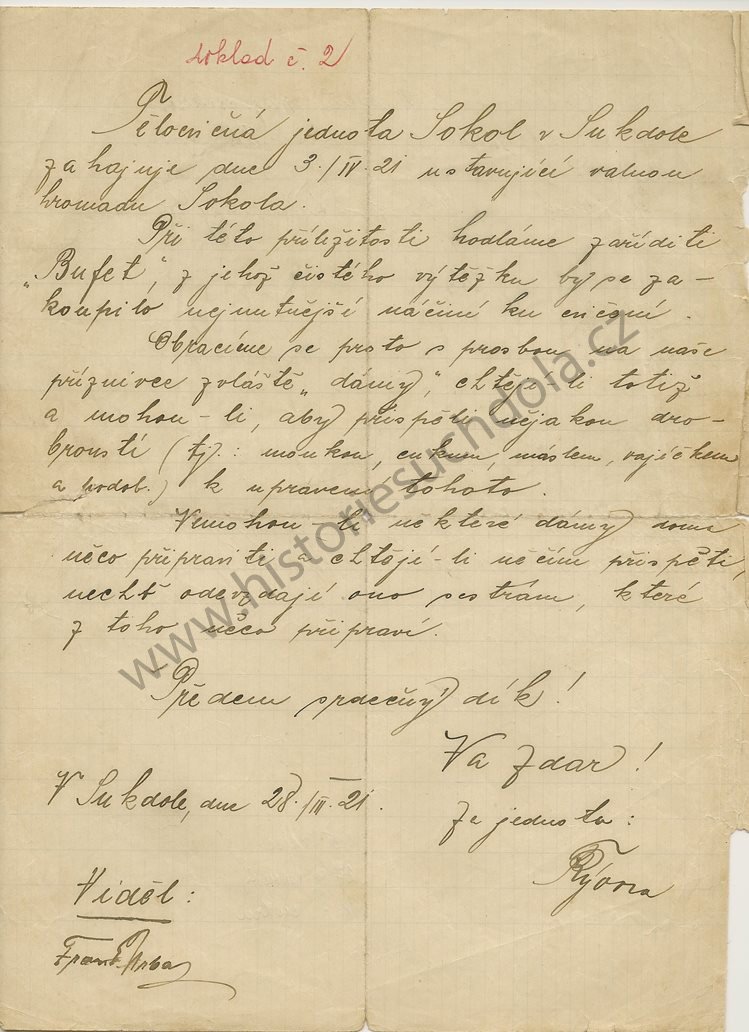 doklad č. 2
Tělocvičná jednota Sokol v Sukdole
zahajuje dne 3./IV. 21 ustavující valnou
hromadu Sokola.
Při této příležitosti hodláme zaříditi
„Bufet“, z jehož čistého výtěžku by se za-
koupilo nejnutnější náčiní ku cvičení.
Obracíme se proto s prosbou na naše
příznivce zvláště „dámy“, chtějí-li totiž
a mohou-li, aby přispěli nějakou dro-
bností (tj.: moukou, cukrem, máslem, vajíčkem
a podob.) k upravení tohoto.
Nemohou-li některé dámy doma
něco připraviti a chtějí-li něčím přispěti,
nechť odevzdají ono sestrám, které
z toho něco připraví.
Předem srdečný dík!
Na zdar!
V Sukdole, dne 28./III. 21.
Za jednotu:
Viděl:
www.historiesuchdola.cz